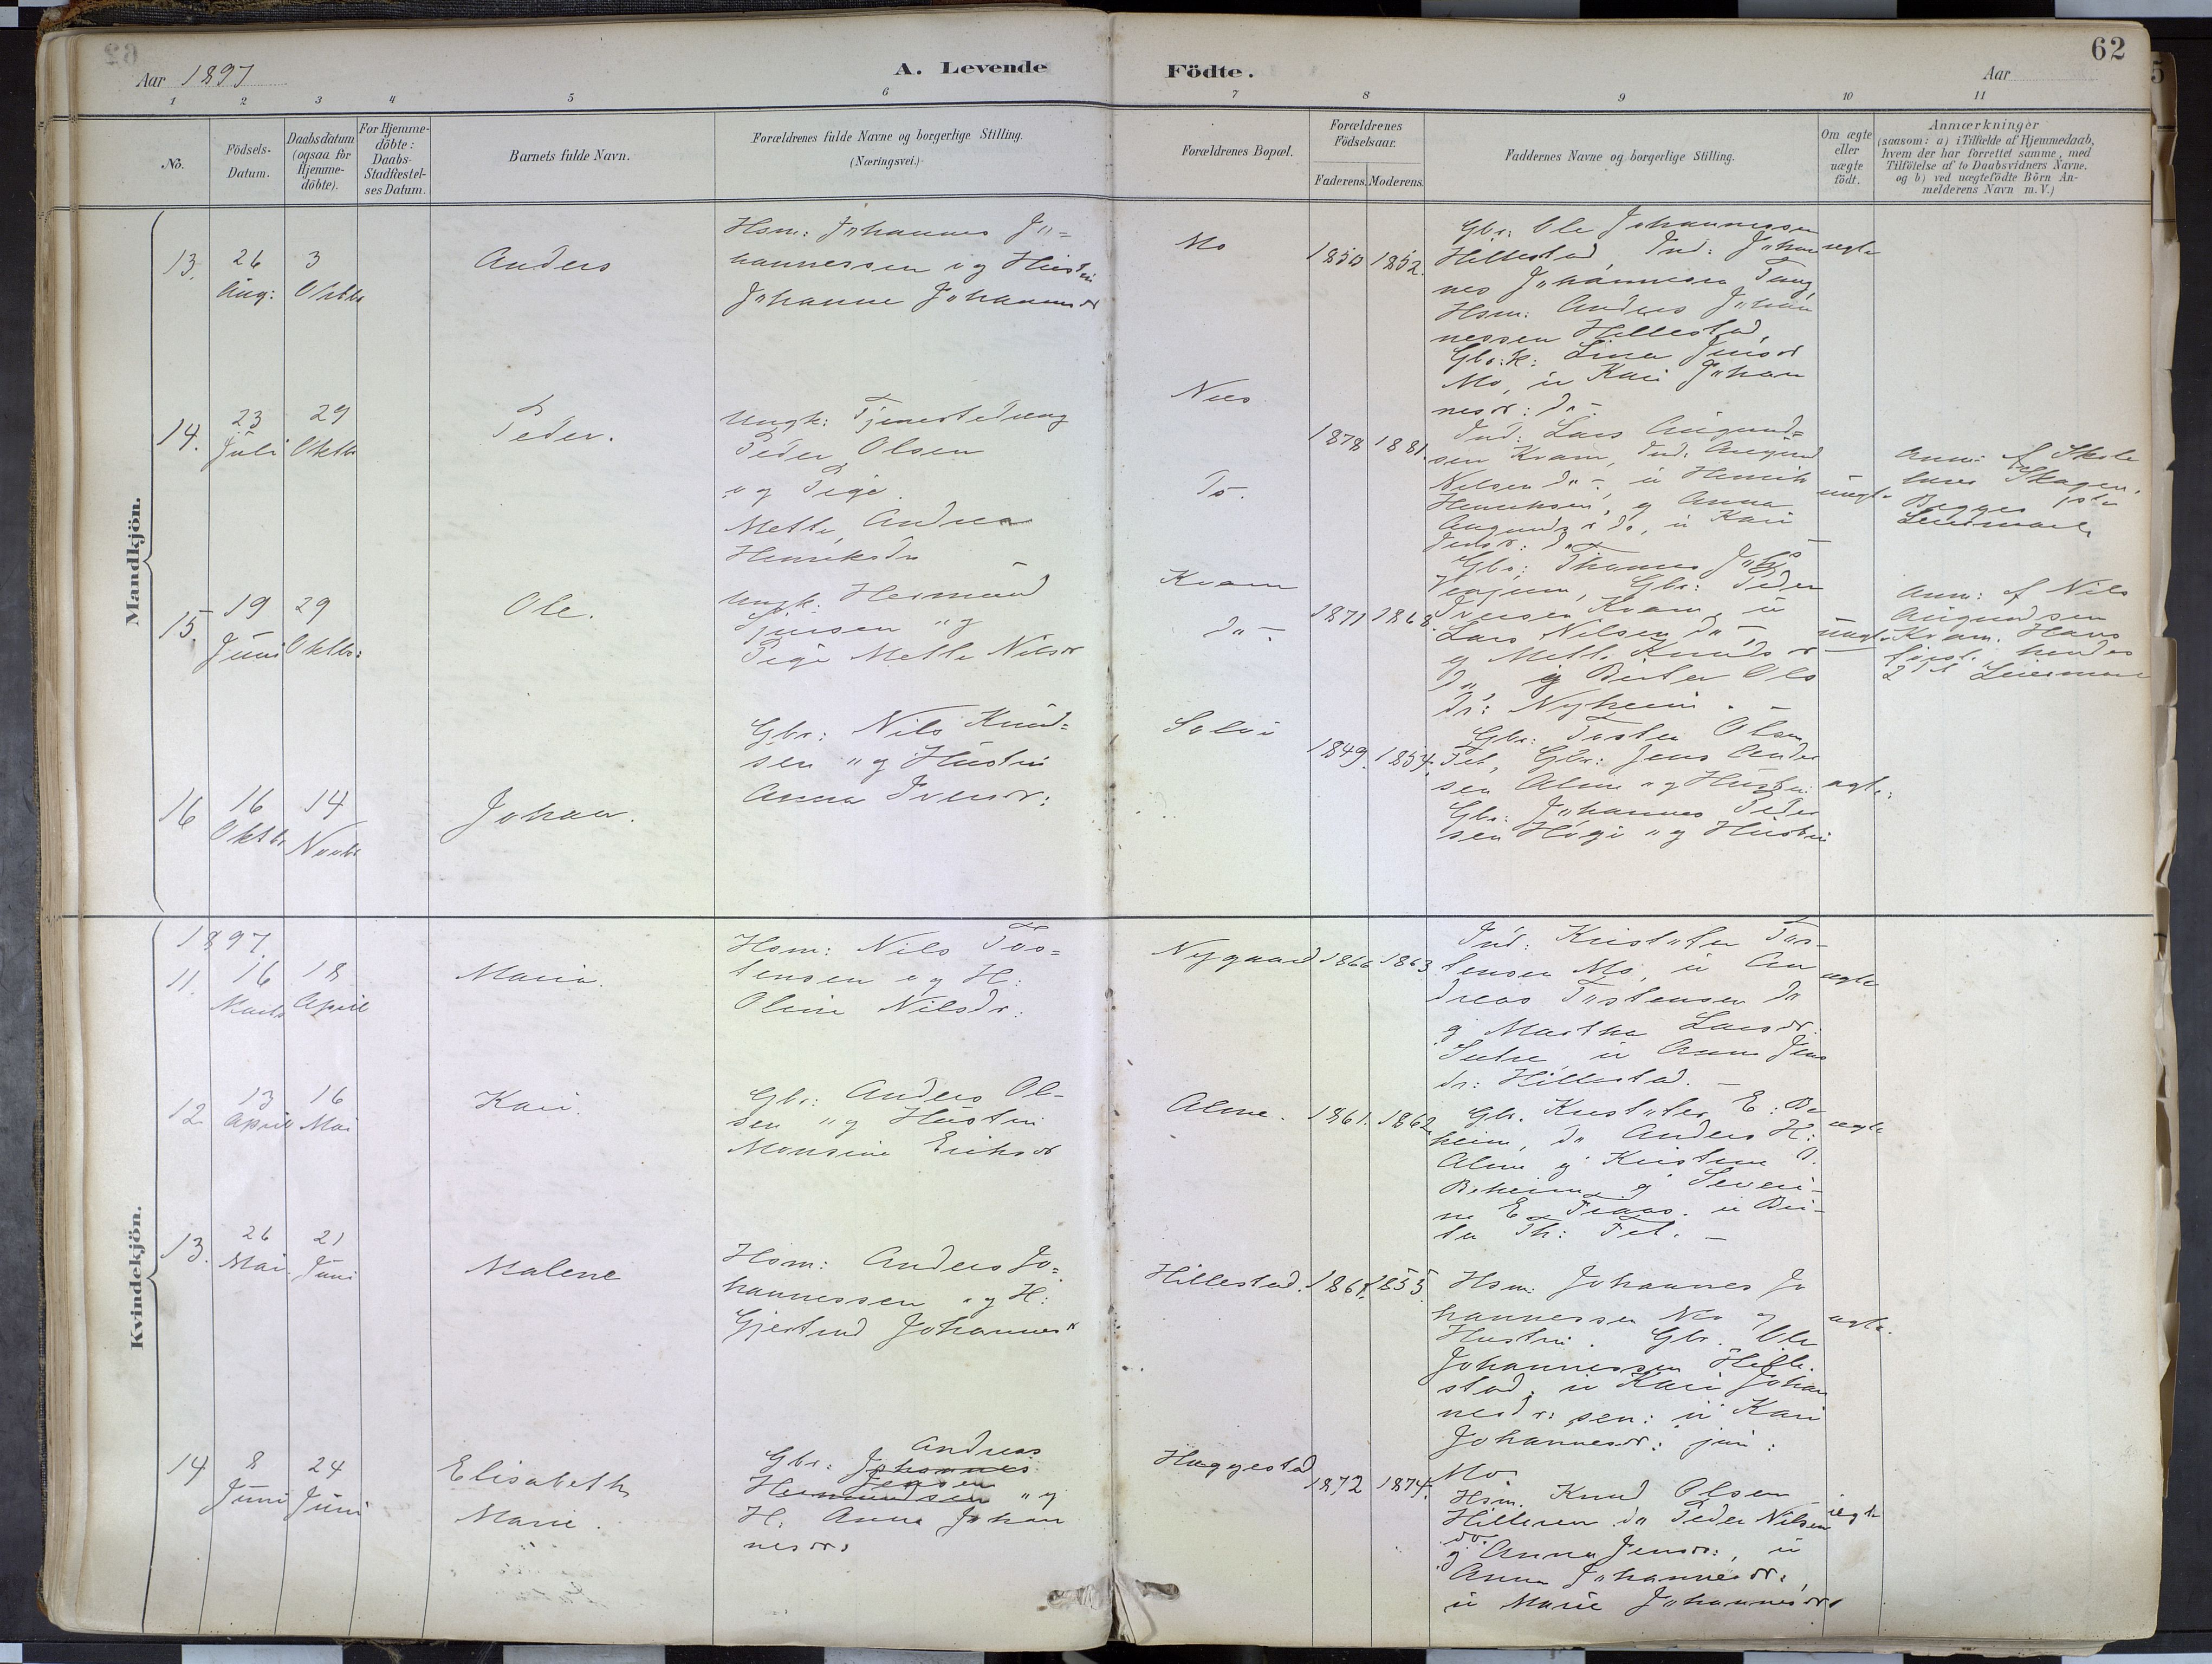 62
Aar 1897
A. Levende Födte.
Aar
1 2 3 4 5 6 7 8 9 10 11
No.
Födsels-Datum.
Daabsdatum (ogsaa for Hjemme-döbte).
For Hjemme-döbte: Daabs-Stadfæstel-ses Datum.
Barnets fulde Navn.
Forældrenes fulde Navne og borgerlige Stilling. (Næringsvei.)
Forældrenes Bopæl.
Forældrenes Födselsaar.
Faderens. Moderens.
Faddernes Navne og borgerlige Stilling.
Om ægte eller uægte födt.
Anmærkninger
(saasom: a) i Tilfælde af Hjemmedaab,
hvem der har forrettet samme, med
Tilföielse af to Daabsvidners Navne.
og b) ved uægtefödte Börn An-
melderens Navn m. V.)
Mandkjön.
13.
26 Aug:
3 Oktbr
Anders
Hsm: Johannes Jo=
hannessen og Hustru
Johanne Johannesdr
Mo
1850 1852.
Gbr: Ole Johannessen
Hillestad, Ind: Johan
nes Johannesen Tang,
Hsm: Anders Johan
nessen Hillestad,
Gbr:K: Lina Jensdr
Mo, u Kari Johan
nesdr: do -
ægte
14.
23 Juli
29 Oktbr
Peder.
Ungk: Tjenestedreng
Peder Olsen
og Pige
Mette Andrea
Henriksdr
Nes
Do.
1878 1881.
Ind: Lars Augund=
sen Kvam, Ind: Augund
Nilsen do -, u Henrik
Henriksen, g Anna
Augundsdr do, u Kari
Jensdr: do -
uægte
Anm: f Skole
lærer Skagen.
Begges 1ste
Leiermaal
15.
19 Juni
29 Oktbr:
Ole.
Ungk: Hermund
Sjursen og
Pige Mette Nilsdr
Kvam
do -
1871 1868
Gbr: Thomas
Gbr: Peder
Iversen Kvam, u
Lars Nilsen do -
g Mette Knudsdr
do g Berte Ols
dr: Nyheim. -
uægte
Anm: f Nils
Augundsen
Kvam. Hans
first. hendes
2det Leiermaal
16
16 Oktbr
14 Novbr
Johan.
Gbr: Nils Knud=
sen og Hustru
Anna Iversdr:
Solvi
1849. 1854.
Gbr: Tosten Olsen
Fet, Gbr: Jens Ander
sen Alme og Hustru
Gbr: Johannes Peder
sen Høgi og Hustru
ægte:
Kvindekjön.
1897.
11.
16 Marts
18 April
Maria.
Hsm: Nils Tos=
tensen og H:
Oline Nilsdr:
Nygaard
1866 1863
Ind: Kristofer Tos-
tensen Mo, u An
dreas Tostensen do
g Martha Larsdr.
u Anna Jens
dr: Hillestad. -
ægte
12.
13 April
16 Mai
Kari.
Gbr: Anders Ol-
sen og Hustru
Monsine Eriksdr
Alme.
1861. 1862
Gbr. Kristofer E: Bø
heim, do Anders H:
Alme g Kristine O.
Bøheim g Severi-
ne E. u Bri-
ta Th: Fet. -
ægte
13.
26 Mai.
21 Juni
Malene
Hsm: Anders Jo=
hannessen og H:
Gjertrud Johannesdr
Hillestad.
1861. 1855.
Hsm: Johannes Jo
hannessen Mo og
Hustru. Gbr. Ole
Johannessen Hille-
stad, u Kari Johan
nesdr: sen: u Kari
Johannesdr: jun:
Mo.
ægte.
14
8 Juni
24 Juni
Elisabeth
Marie.
Andreas
Gbr: Johannes
Jensen
Hermundsen og
H: Anna Johan
nesdr:
Haggestad
1872 1874.
Hsm. Knud Olsen
Hilleren do Peder Nilsen
do.
g Anna Jensdr:, u
Anna Johannesdr:,
u Marie Johannesdr:
ægte